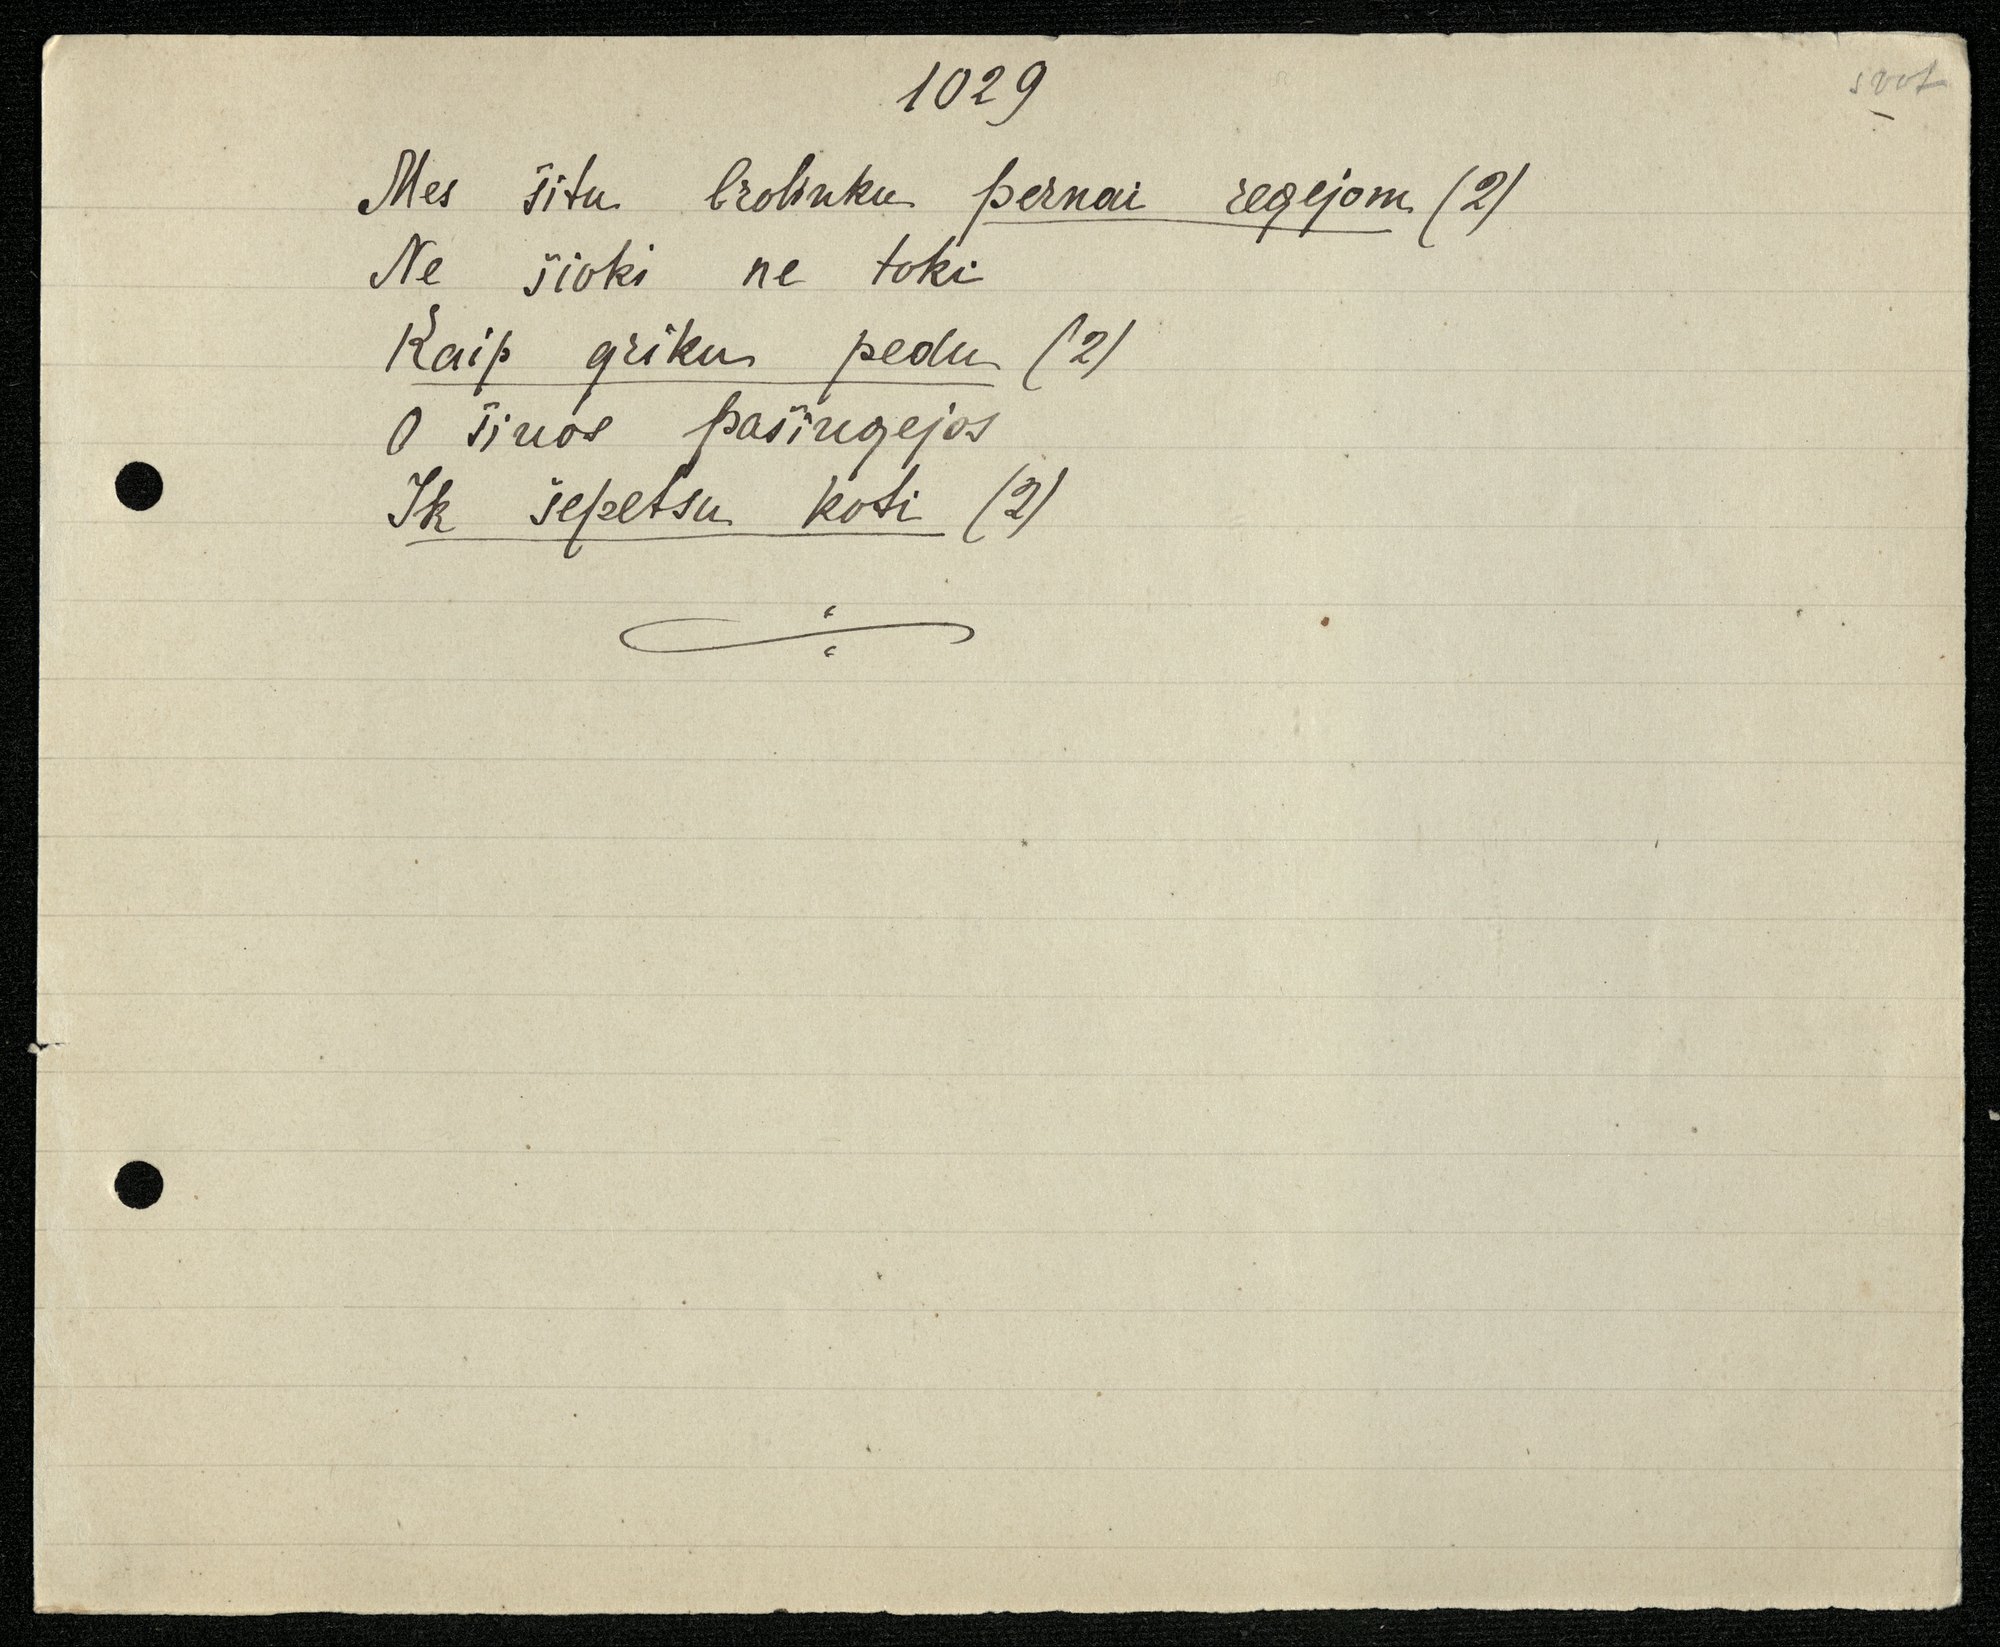 1029
svot
Mes šitu brolinku pernai regejom (2)
Ne šioki ne toki
Kaip griku pedu (2)
O šinos pašingejos
Ik šepetsu koti (2)